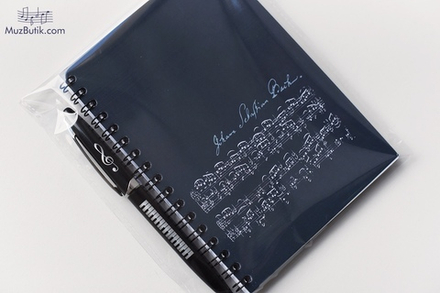 MuzButik.com
Johann Sebastian Bach.